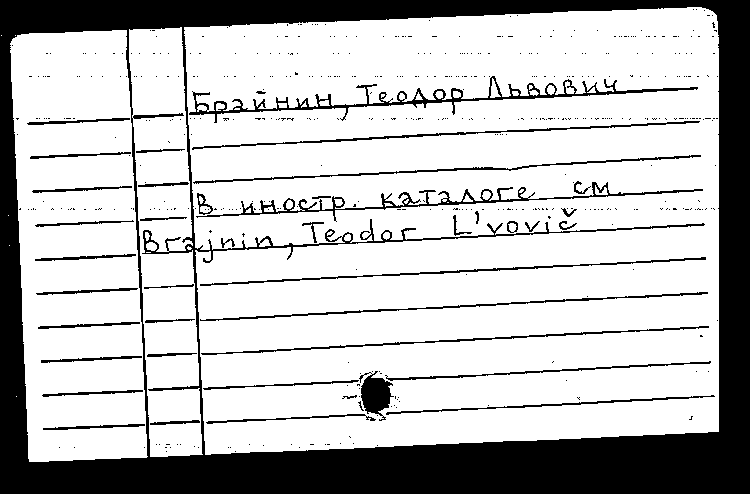 Брайнин, Теодор Львович
В иностр. каталоге см.
Brajnin, Teodor L'vovič